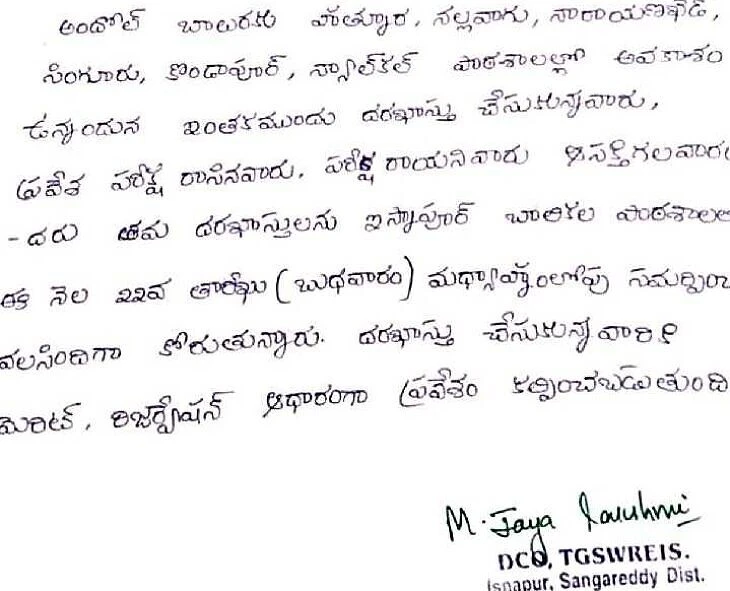 అందోల్ బాలురకు హత్నూర, నల్లవాగు, నారాయణఖేడ్,
సింగూరు, కొండాపూర్, న్యాల్‌కల్ పాఠశాలల్లో అవకాశం
ఉన్నందున ఇంతకముందు దరఖాస్తు చేసుకున్నవారు,
ప్రవేశ పరీక్ష రాసినవారు, పరీక్ష రాయనివారు ఆసక్తిగలవారం
-దరు తమ దరఖాస్తులను ఇస్నాపూర్ బాలికల పాఠశాలలో
ఈ నెల 22వ తారీఖు (బుధవారం) మధ్యాహ్నంలోపు సమర్పించ
వలసిందిగా కోరుతున్నారు. దరఖాస్తు చేసుకున్న వారికి
మెరిట్, రిజర్వేషన్ ఆధారంగా ప్రవేశం కల్పించబడుతుంది
M. Jaya Laxuhmi
DCO, TGSWREIS.
Isnapur, Sangareddy Dist.